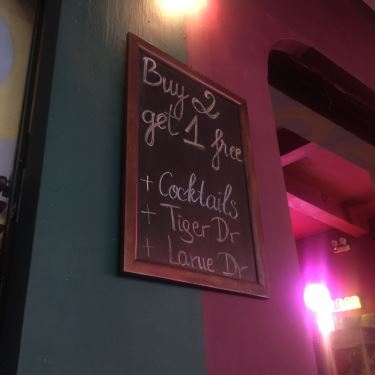 Buy 2
get 1 free
+ Cocktails
+ Tiger Dr
+ Larue Dr